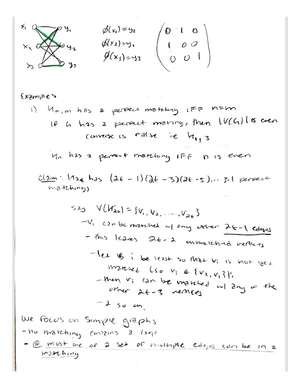 x₁ y₁ φ(x₁)=y₂ 0 1 0
x₂ y₂ φ(x₂)=y₁ 1 0 0
x₃ y₃ φ(x₃)=y₃ 0 0 1
Examples
1) Kn,m has a perfect matching iff n=m
If G has a perfect mating, then |V(G)| is even
converse is false ie K
Kn has a perfect matching iff n is even
Claim: K2t has (2t-1)(2t-3)(2t-5)...3·1 perfect
matchings
say V(K2t) = {v₁, v₂, ..., v2t}
- v₁ can be matched w/ any other 2t-1 edges
- this leaves 2t-2 unmatched vertices
- let i be least so that vi is not yet
matched (so vi ∈ {v2, v3});
- then vi can be matched w/ any of the
other 2t-3 vertices
- & so on.
We focus on simple graphs
- no matching contains a loop
- @ most one of a set of multiple edges can be in a
matching